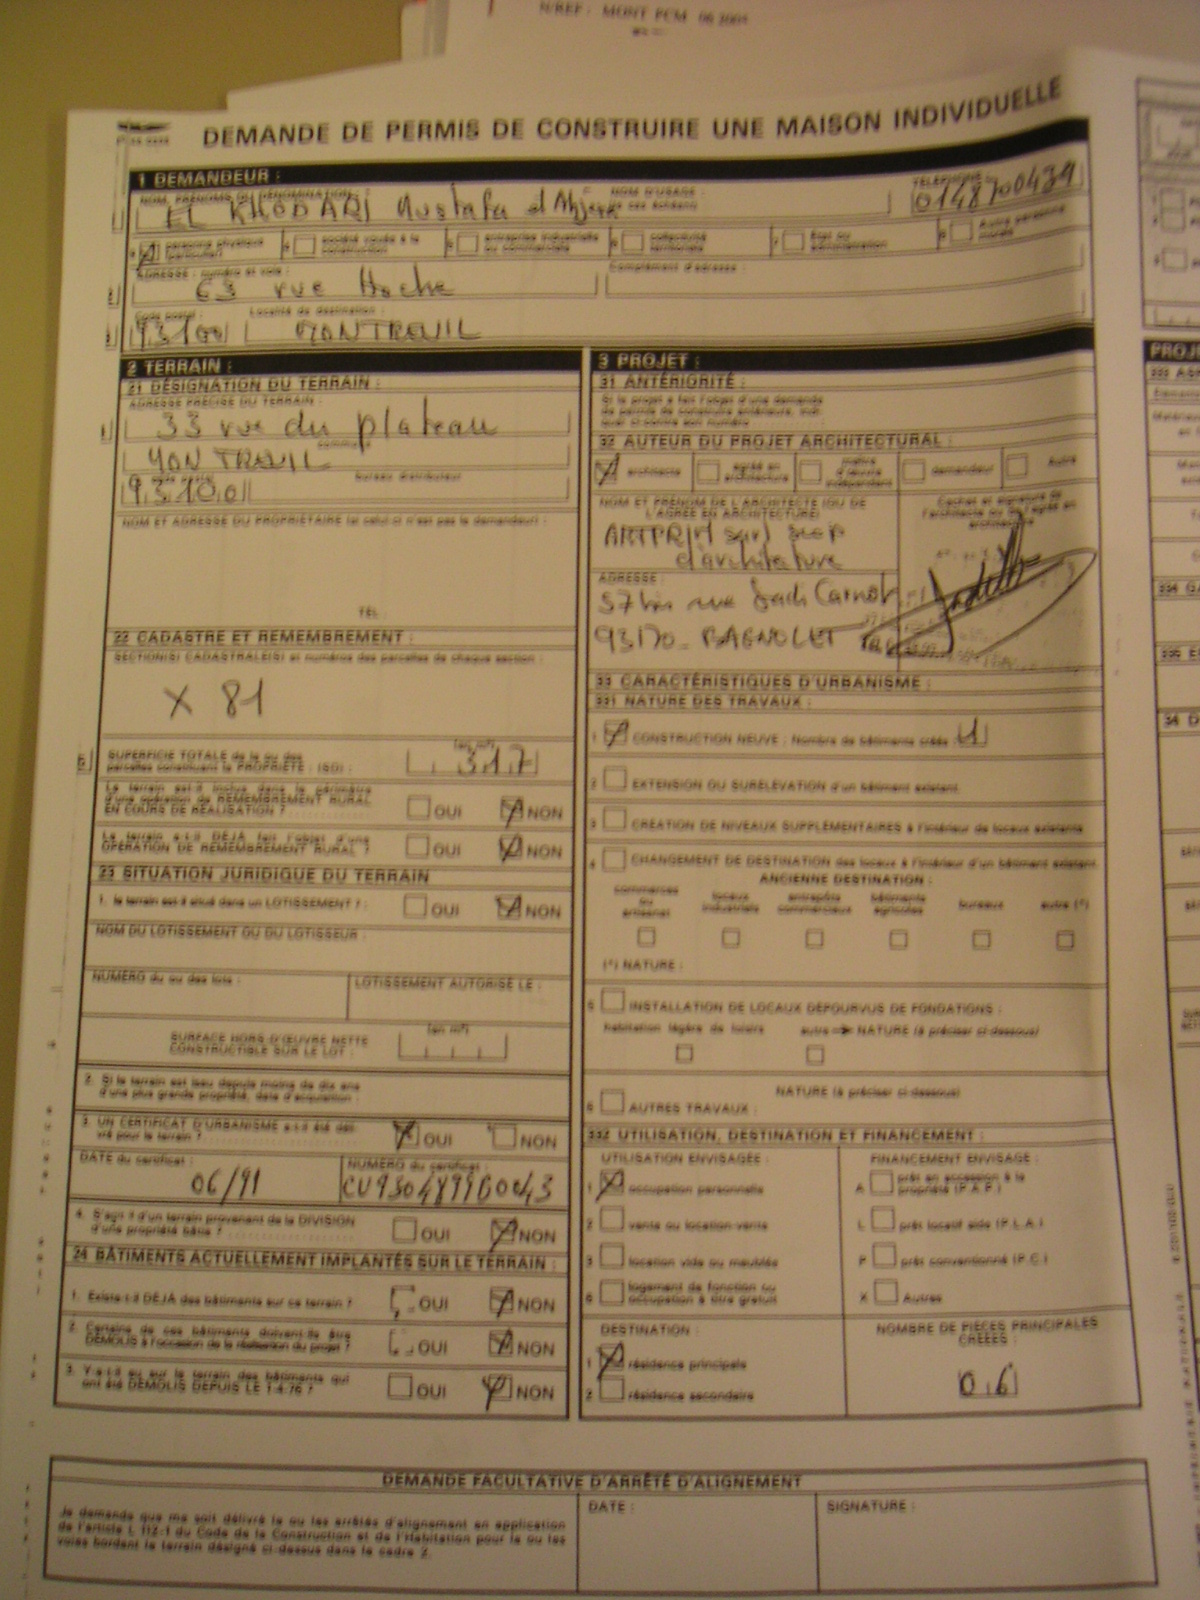 N/REF : MONT PCM 06 2001
DEMANDE DE PERMIS DE CONSTRUIRE UNE MAISON INDIVIDUELLE
1 DEMANDEUR :
NOM, PRÉNOMS OU DÉNOMINATION : NOM D'USAGE : TÉLÉPHONE
EL KHODARI Mustafa 0148700439
personne physique particulier société vouée à la construction entreprise industrielle ou commerciale collectivité territoriale État ou administration Autre personne morale
ADRESSE : numéro et voie : Complément d'adresse :
63 rue Hoche
Code postal : Localité de destination :
93100 MONTREUIL
2 TERRAIN :
21 DÉSIGNATION DU TERRAIN :
ADRESSE PRÉCISE DU TERRAIN :
33 rue du plateau
commune
MONTREUIL
bureau distributeur
93100
NOM ET ADRESSE DU PROPRIÉTAIRE (si celui-ci n'est pas le demandeur) :
TEL :
22 CADASTRE ET REMEMBREMENT :
SECTION(S) CADASTRALE(S) et numéros des parcelles de chaque section :
X 81
SUPERFICIE TOTALE de la ou des (en m²)
parcelles constituant la PROPRIÉTÉ : 317
Le terrain est-il inclus dans le périmètre
d'une opération de REMEMBREMENT RURAL
EN COURS DE RÉALISATION ? OUI NON
Le terrain a-t-il DÉJÀ fait l'objet d'une
OPÉRATION DE REMEMBREMENT RURAL ? OUI NON
23 SITUATION JURIDIQUE DU TERRAIN
1. le terrain est-il situé dans un LOTISSEMENT ? : OUI NON
NOM DU LOTISSEMENT OU DU LOTISSEUR :
NUMÉRO du ou des lots : LOTISSEMENT AUTORISÉ LE :
SURFACE HORS D'ŒUVRE NETTE (en m²)
CONSTRUCTIBLE SUR LE LOT :
2. Si le terrain est issu depuis moins de dix ans
d'une plus grande propriété, date d'acquisition :
3. UN CERTIFICAT D'URBANISME a-t-il été déli-
vré pour le terrain ? OUI NON
DATE du certificat : NUMÉRO du certificat :
06/91 CU9304899B0043
4. S'agit-il d'un terrain provenant de la DIVISION
d'une propriété bâtie ? OUI NON
24 BÂTIMENTS ACTUELLEMENT IMPLANTÉS SUR LE TERRAIN :
1. Existe-t-il DÉJÀ des bâtiments sur ce terrain ? OUI NON
2. Certains de ces bâtiments doivent-ils être
DÉMOLIS à l'occasion de la réalisation du projet ? OUI NON
3. Y a-t-il eu sur le terrain des bâtiments qui
ont été DÉMOLIS DEPUIS LE 1-4-76 ? OUI NON
3 PROJET :
31 ANTÉRIORITÉ :
Si le projet a fait l'objet d'une demande
de permis de construire antérieure,
32 AUTEUR DU PROJET ARCHITECTURAL :
architecte agréé en architecture maître d'œuvre indépendant demandeur Autre
NOM ET PRÉNOM DE L'ARCHITECTE (OU DE
L'AGRÉÉ EN ARCHITECTURE)
Cachet et signature de
l'architecte ou de l'agréé en
architecture
ARTPRIM sarl scop
d'architecture
ADRESSE :
57 bis rue Sadi Carnot
93170 - BAGNOLET
33 CARACTÉRISTIQUES D'URBANISME :
331 NATURE DES TRAVAUX :
1 CONSTRUCTION NEUVE : Nombre de bâtiments créés : 1
2 EXTENSION OU SURÉLÉVATION d'un bâtiment existant.
3 CRÉATION DE NIVEAUX SUPPLÉMENTAIRES à l'intérieur de locaux existants
4 CHANGEMENT DE DESTINATION des locaux à l'intérieur d'un bâtiment existant.
ANCIENNE DESTINATION :
commerces ou artisanat locaux industriels entrepôts commerciaux bâtiments agricoles bureaux autre (*)
(*) NATURE :
5 INSTALLATION DE LOCAUX DÉPOURVUS DE FONDATIONS :
habitation légère de loisirs autre NATURE (à préciser ci-dessous)
NATURE (à préciser ci-dessous)
6 AUTRES TRAVAUX :
332 UTILISATION, DESTINATION ET FINANCEMENT :
UTILISATION ENVISAGÉE : FINANCEMENT ENVISAGÉ :
1 occupation personnelle A prêt en accession à la propriété (P.A.P.)
2 vente ou location-vente L prêt locatif aidé (P.L.A.)
3 location vide ou meublée P prêt conventionné (P.C.)
6 logement de fonction ou occupation à titre gratuit X Autres
DESTINATION : NOMBRE DE PIÈCES PRINCIPALES
CRÉÉES :
1 résidence principale 06
2 résidence secondaire
DEMANDE FACULTATIVE D'ARRÊTÉ D'ALIGNEMENT
Je demande que me soit délivré le ou les arrêtés d'alignement en application
de l'article L 112-1 du Code de la Construction et de l'Habitation pour la ou les
voies bordant le terrain désigné ci-dessus dans le cadre 2.
DATE : SIGNATURE :